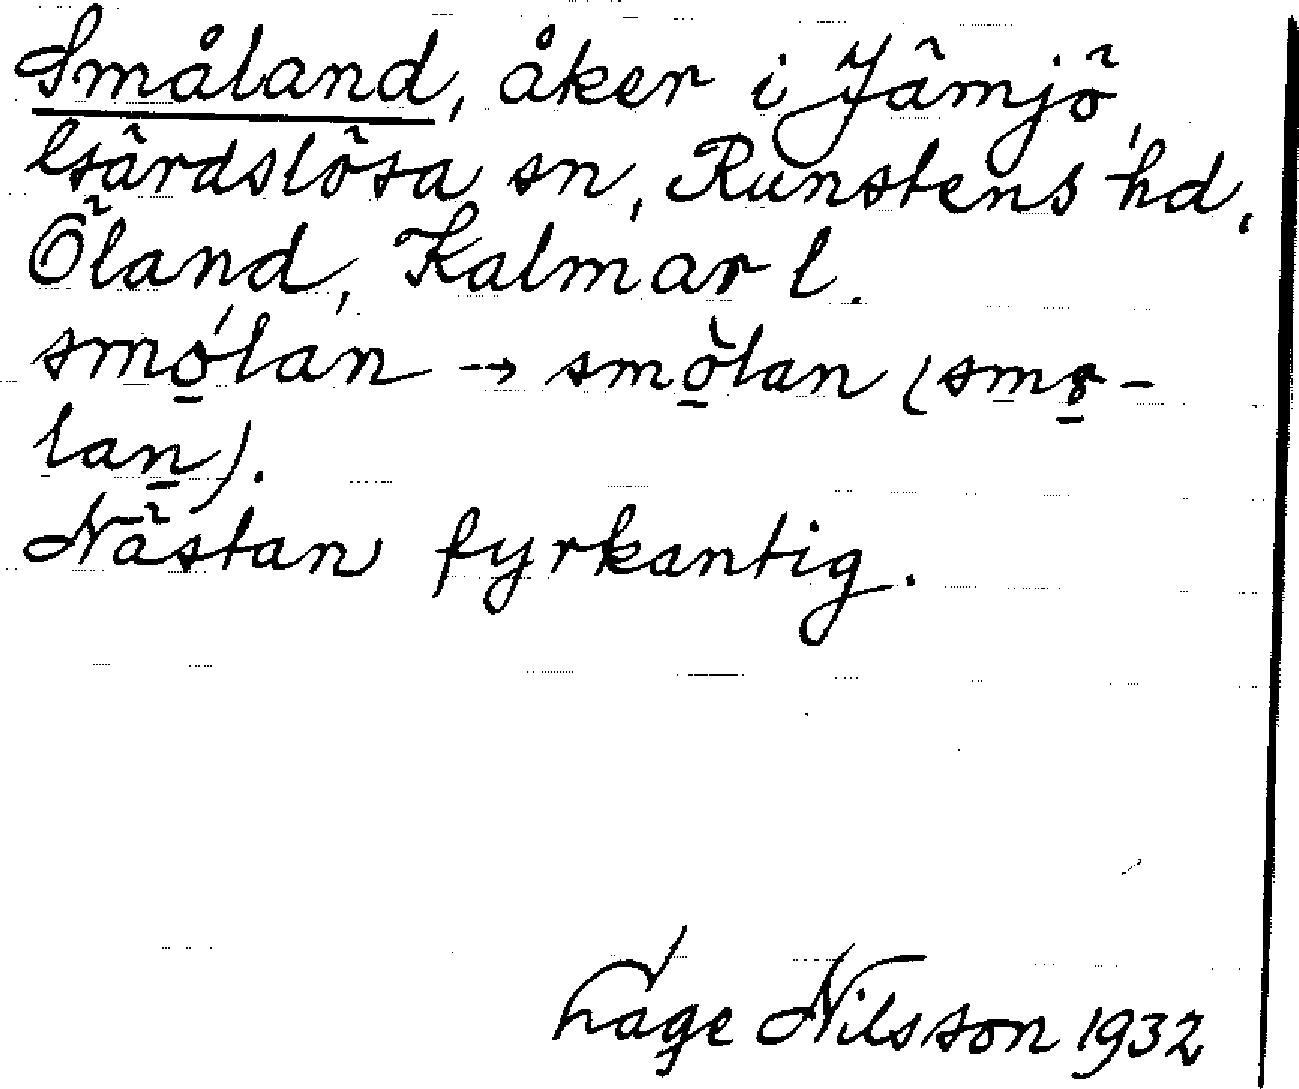 Småland, åker i Jämjö,
Gärdslösa sn, Runstens hd,
Öland, Kalmar l.
smó̱lan → smò̱lan (smo̱-
lan̲).
Nästan fyrkantig.
Tage Nilsson 1932